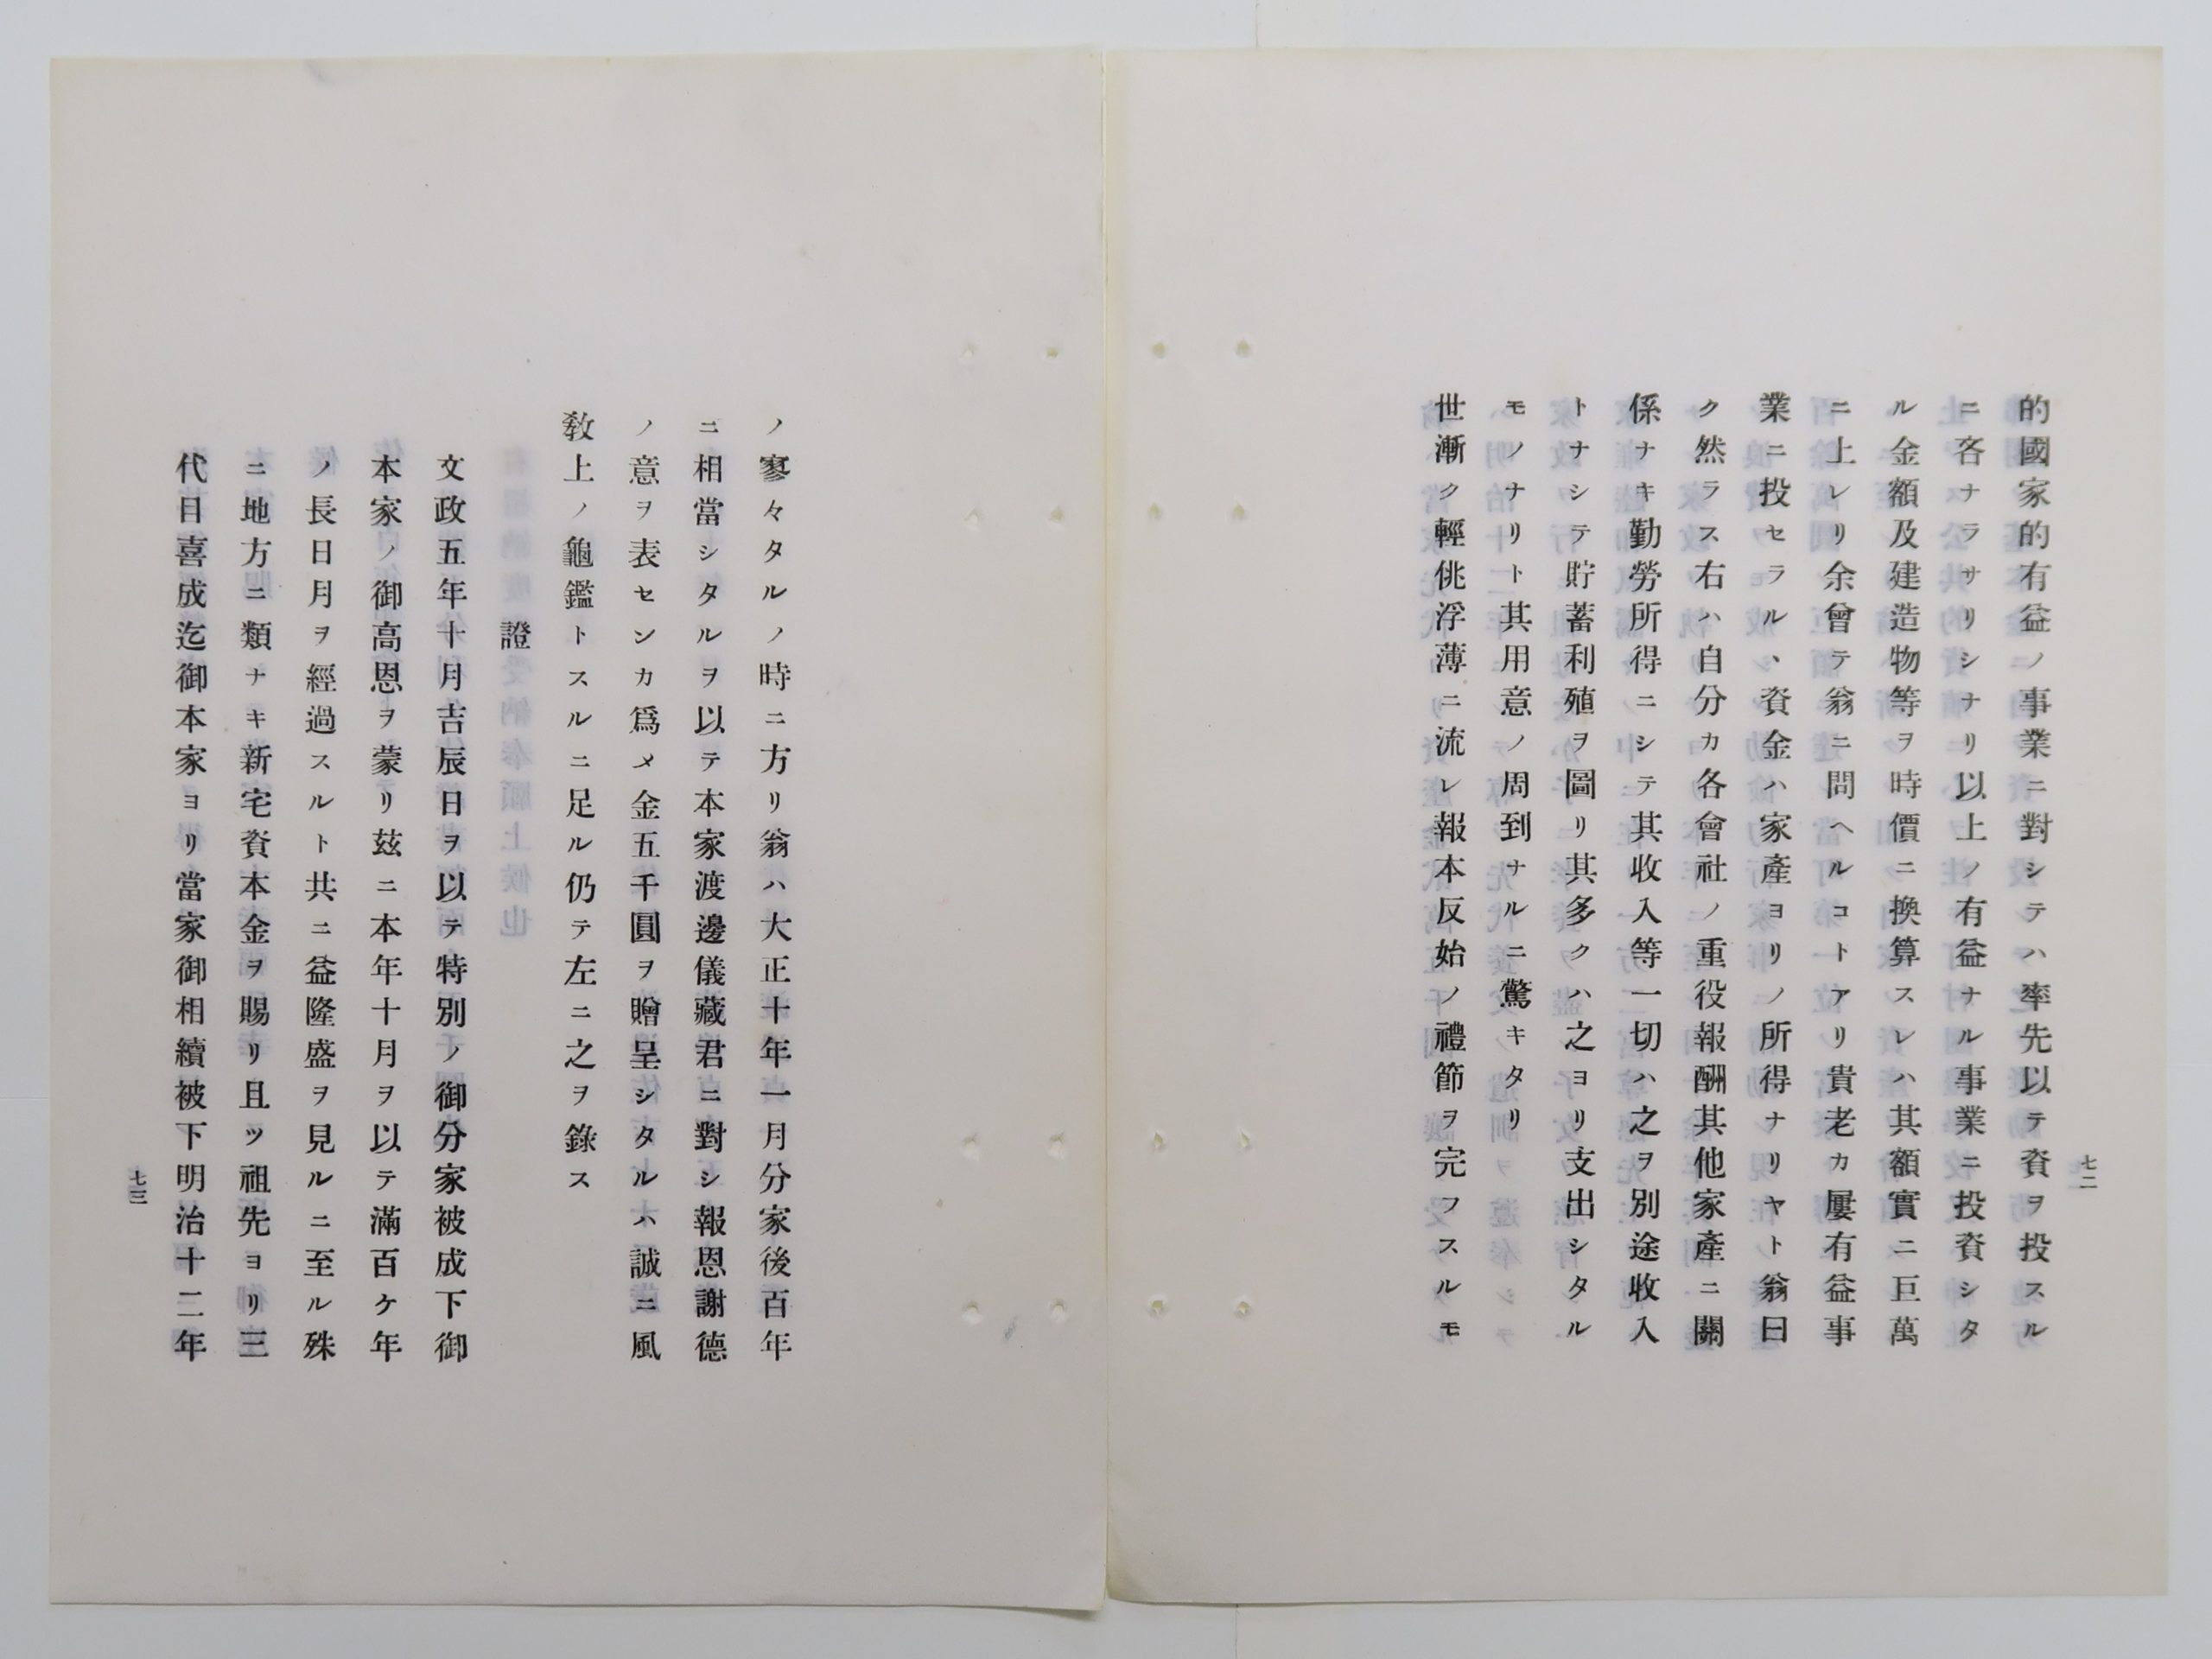 七二
的國家的有益ノ事業ニ對シテハ率先以テ資ヲ投スル
ニ吝ナラサリシナリ以上ノ有益ナル事業ニ投資シタ
ル金額及建造物等ヲ時價ニ換算スレハ其額實ニ巨萬
ニ上レリ余曾テ翁ニ問ヘルコトアリ貴老カ屢有益事
業ニ投セラルヽ資金ハ家產ヨリノ所得ナリヤト翁曰
ク然ラス右ハ自分カ各會社ノ重役報酬其他家產ニ關
係ナキ勤勞所得ニシテ其收入等一切ハ之ヲ別途收入
トナシテ貯蓄利殖ヲ圖リ其多クハ之ヨリ支出シタル
モノナリト其用意ノ周到ナルニ驚キタリ
世漸ク輕佻浮薄ニ流レ報本反始ノ禮節ヲ完フスルモ
ノ寥々タルノ時ニ方リ翁ハ大正十年一月分家後百年
ニ相當シタルヲ以テ本家渡邊儀藏君ニ對シ報恩謝德
ノ意ヲ表センカ爲メ金五千圓ヲ贈呈シタルハ誠ニ風
敎上ノ龜鑑トスルニ足ル仍テ左ニ之ヲ錄ス
證
文政五年十月吉辰日ヲ以テ特別ノ御分家被成下御
本家ノ御高恩ヲ蒙リ玆ニ本年十月ヲ以テ滿百ケ年
ノ長日月ヲ經過スルト共ニ益隆盛ヲ見ルニ至ル殊
ニ地方ニ類ナキ新宅資本金ヲ賜リ且ツ祖先ヨリ三
代目喜成迄御本家ヨリ當家御相續被下明治十二年
七三